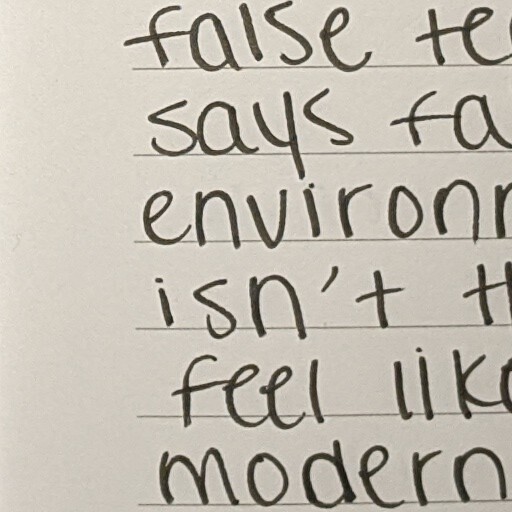 false te
says fa
environ
isn't t
feel lik
modern